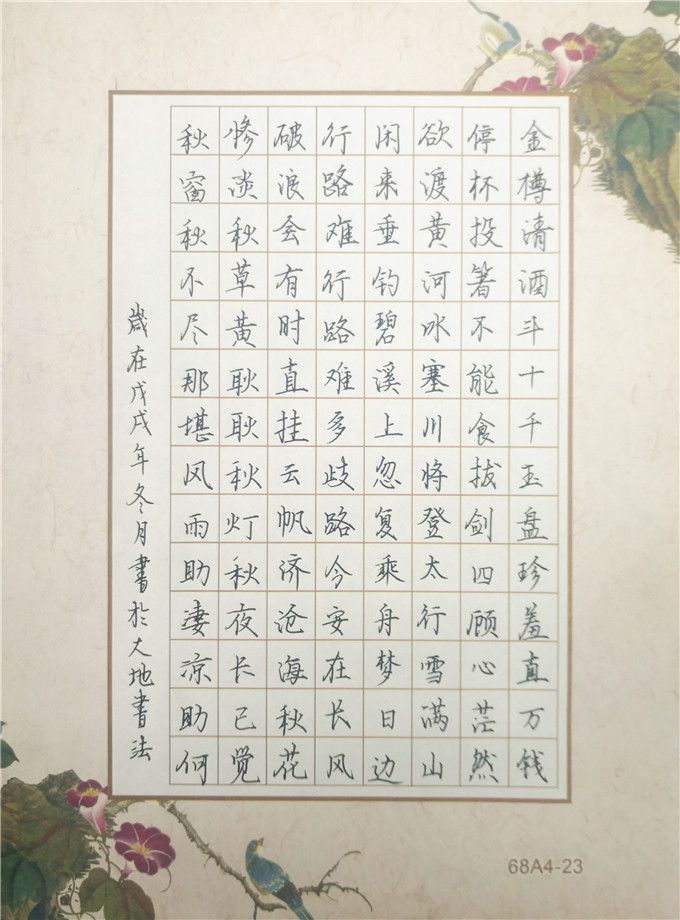 金樽清酒斗十千玉盘珍羞直万钱
停杯投箸不能食拔剑四顾心茫然
欲渡黄河冰塞川将登太行雪满山
闲来垂钓碧溪上忽复乘舟梦日边
行路难行路难多歧路今安在长风
破浪会有时直挂云帆济沧海秋花
惨淡秋草黄耿耿秋灯秋夜长已觉
秋窗秋不尽那堪风雨助凄凉助何
岁在戊戌年冬月書於大地書法
68A4-23